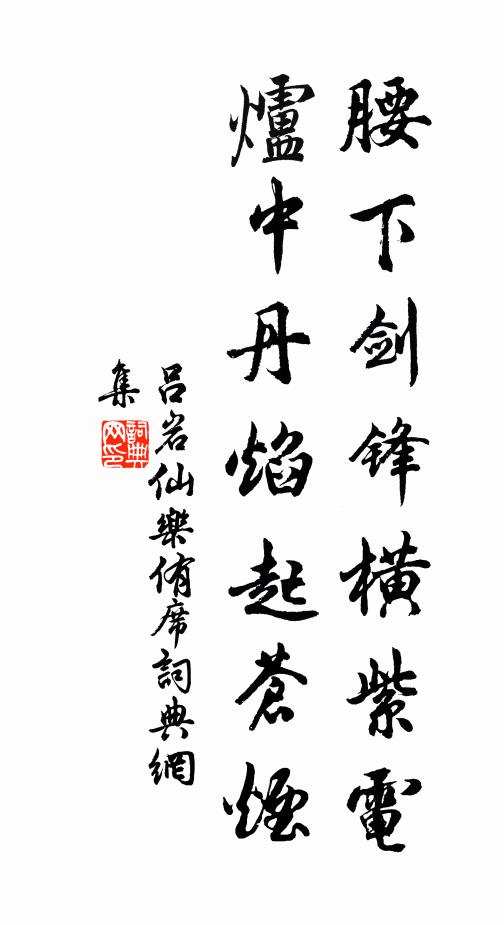 腰下剑锋橫紫電
爐中丹焰起蒼煙
吕岩仙樂侑席詞典網
集
詞典網印